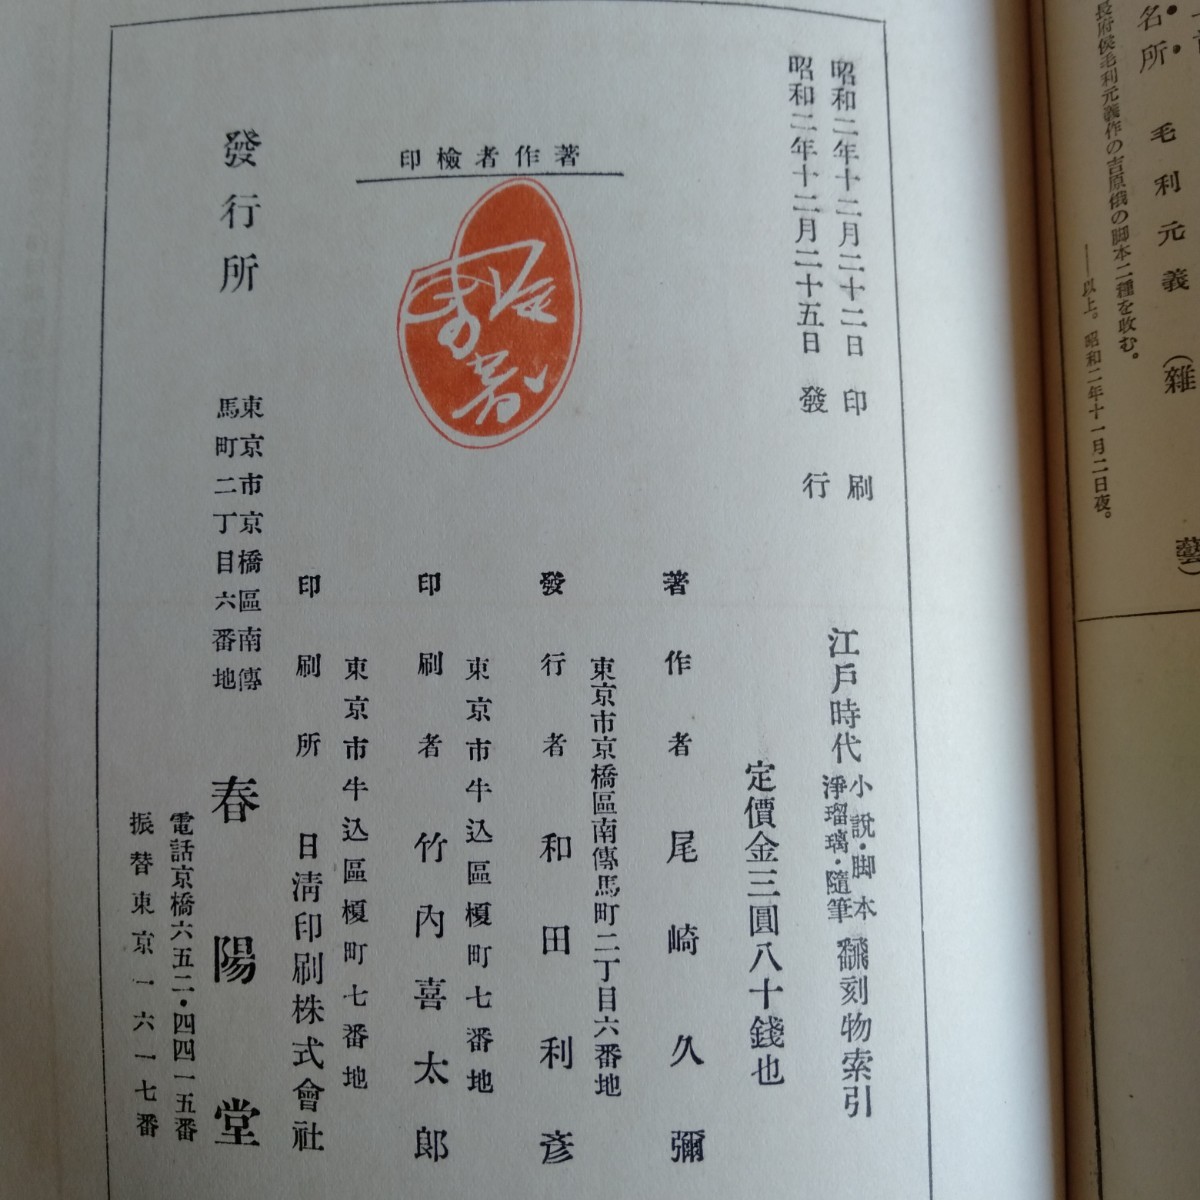 名所 毛利元義（雜藝）
長府侯毛利元義作の吉原俄の脚本二種を收む。
――以上。昭和二年十一月二日夜。
昭和二年十二月二十二日 印刷
昭和二年十二月二十五日 發行
著作者檢印
江戸時代 小說・脚本 淨瑠璃・隨筆 飜刻物索引
定價金三圓八十錢也
著作者 尾崎久彌
東京市京橋區南傳馬町二丁目六番地
發行者 和田利彥
東京市牛込區榎町七番地
印刷者 竹內喜太郎
東京市牛込區榎町七番地
印刷所 日淸印刷株式會社
發行所
東京市京橋區南傳
馬町二丁目六番地
春陽堂
電話京橋六五二・四四一五番
振替東京一六一七番